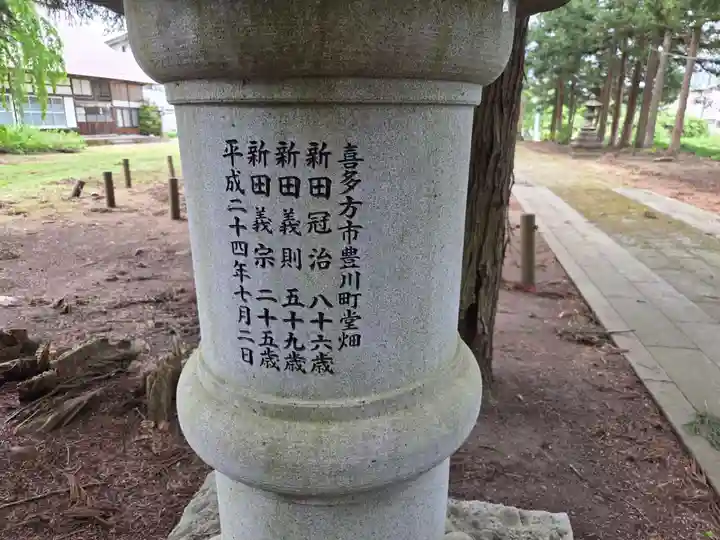 喜多方市豊川町堂畑
新田冠治 八十六歳
新田義則 五十九歳
新田義宗 二十五歳
平成二十四年七月二日